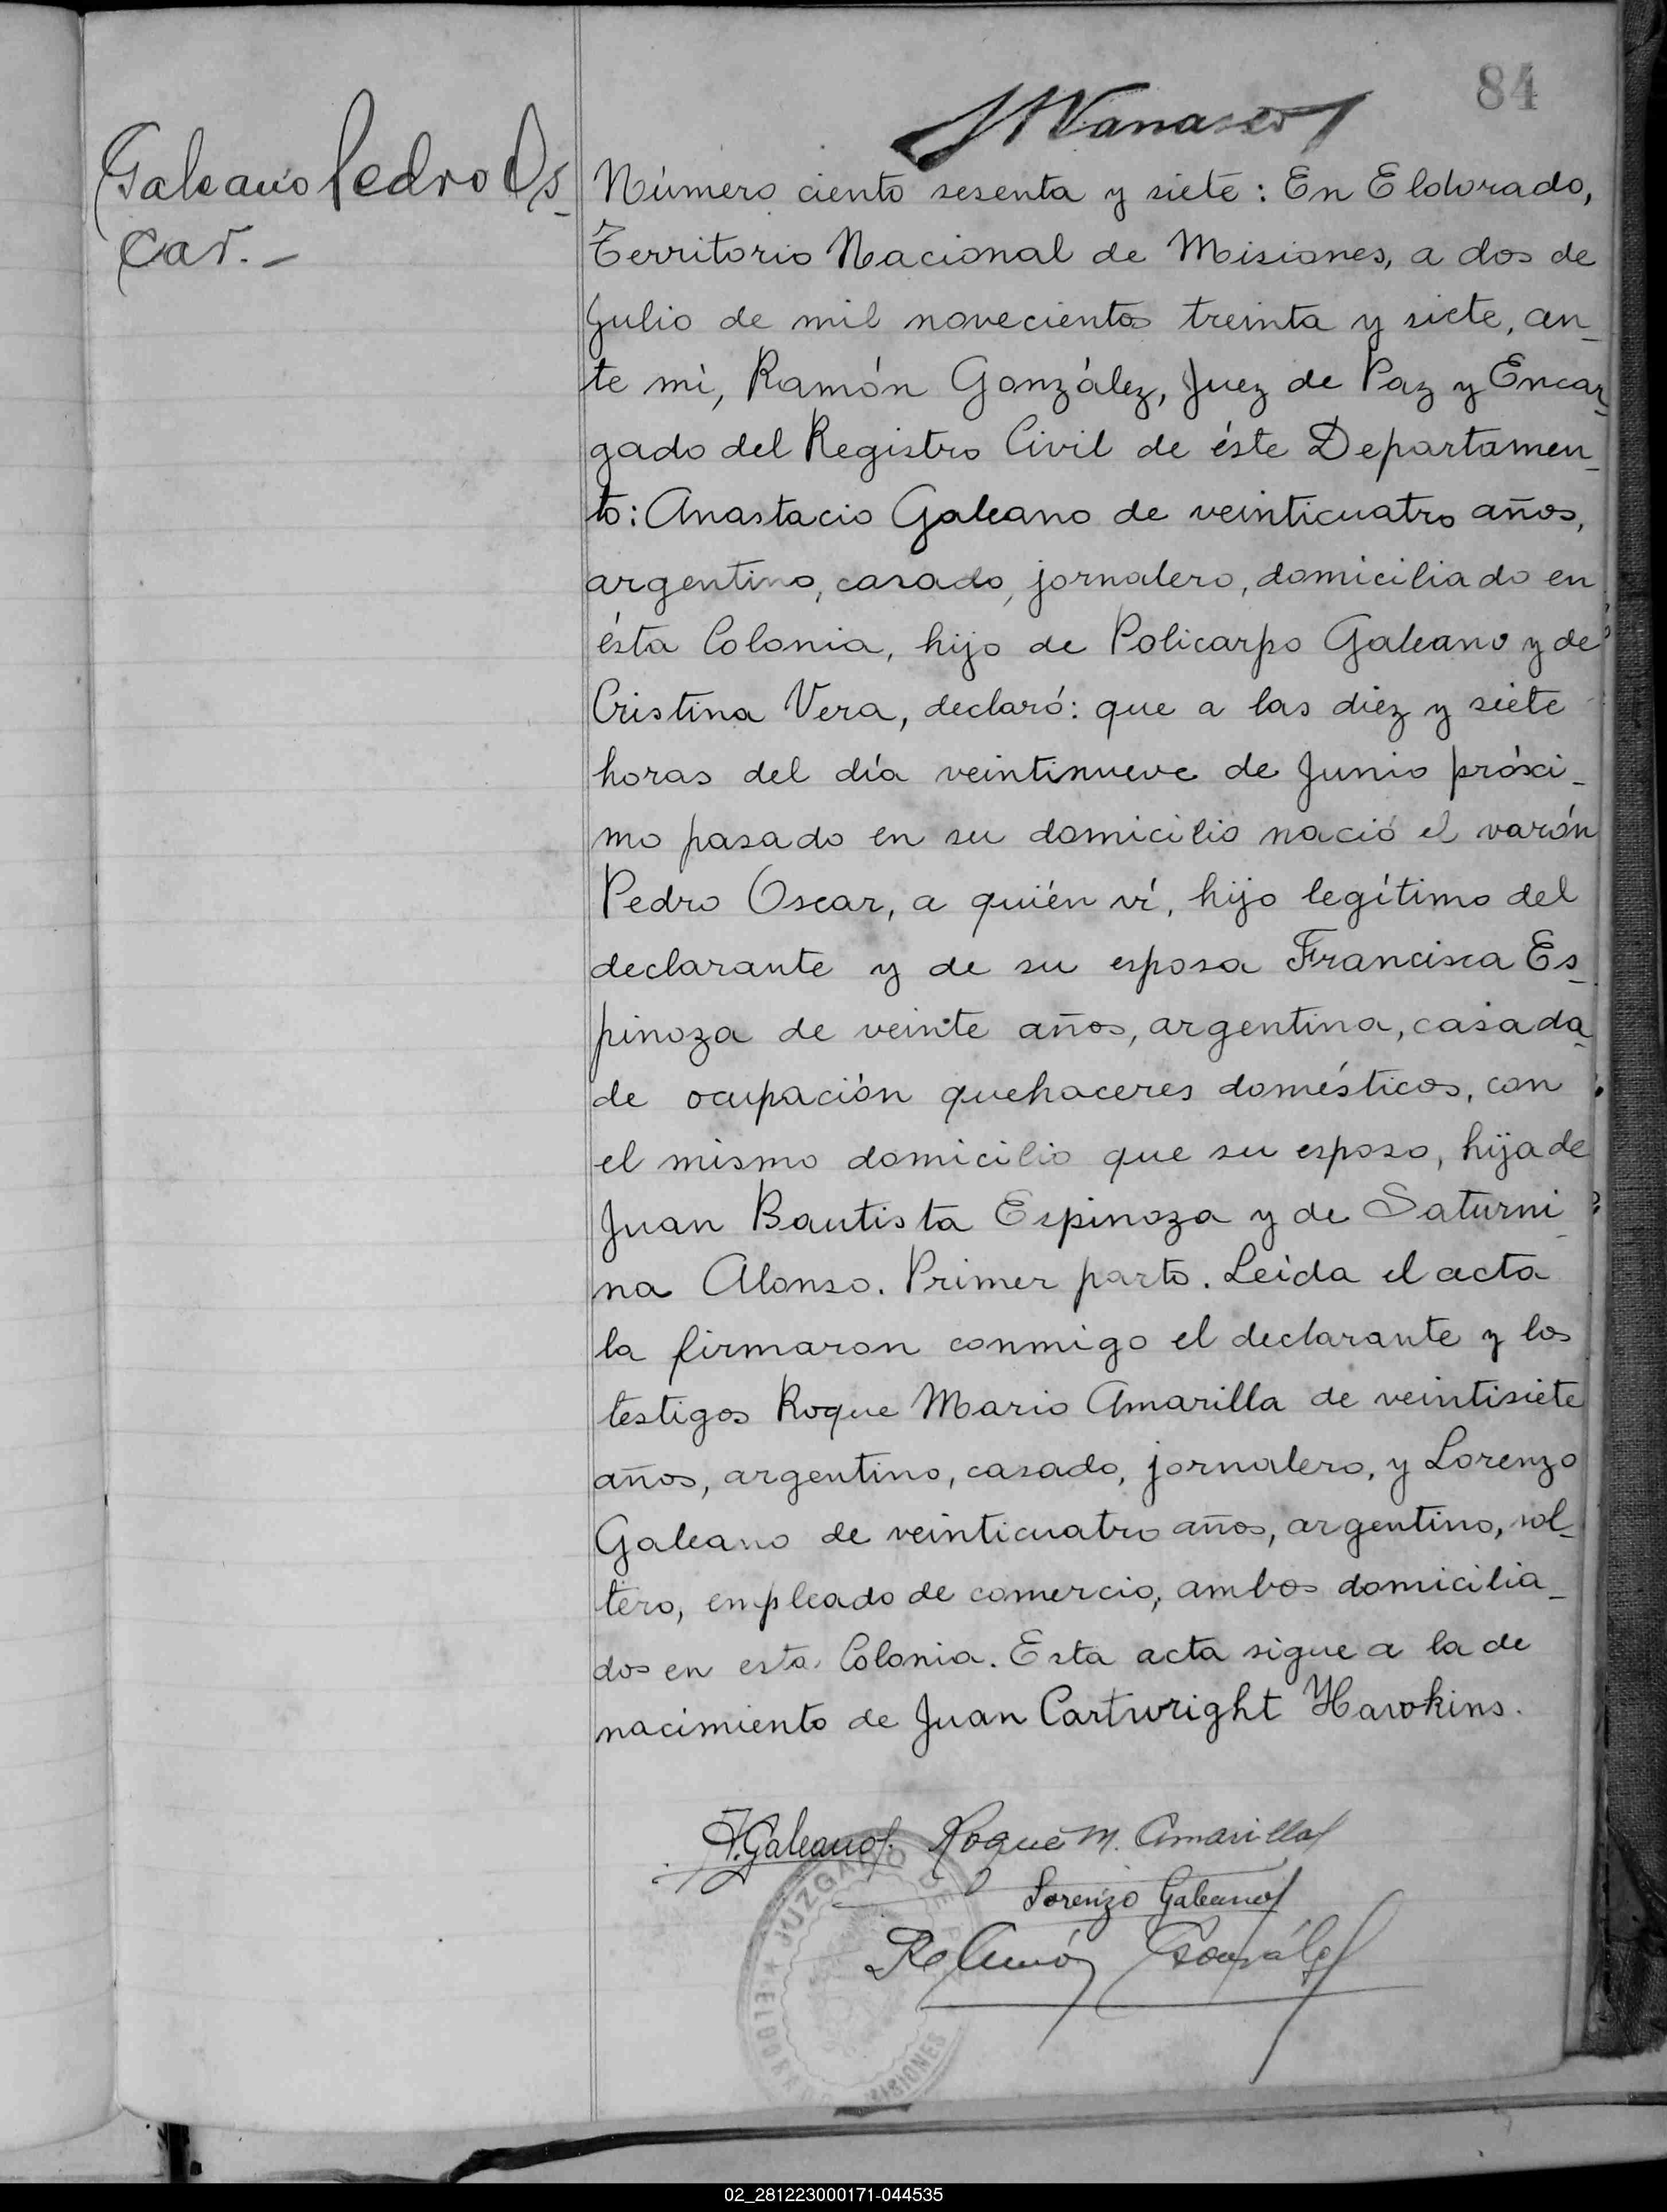 84
Galeano Pedro Os-
car.-
Número ciento sesenta y siete: En Eldorado,
Territorio Nacional de Misiones, a dos de
Julio de mil novecientos treinta y siete, an-
te mi, Ramón González, Juez de Paz y Encar-
gado del Registro Civil de éste Departamen-
to: Anastacio Galeano de veinticuatro años,
argentino, casado, jornalero, domiciliado en
ésta Colonia, hijo de Policarpo Galeano y de
Cristina Vera, declaró: que a las diez y siete
horas del día veintinueve de Junio próxi-
mo pasado en su domicilio nació el varón
Pedro Oscar, a quién ví, hijo legítimo del
declarante y de su esposa Francisca Es-
pinoza de veinte años, argentina, casada
de ocupación quehaceres domésticos, con
el mismo domicilio que su esposo, hija de
Juan Bautista Espinoza y de Saturni-
na Alonso. Primer parto. Leída el acta
la firmaron conmigo el declarante y los
testigos Roque Mario Amarilla de veintisiete
años, argentino, casado, jornalero, y Lorenzo
Galeano de veinticuatro años, argentino, sol-
tero, empleado de comercio, ambos domicilia-
dos en esta Colonia. Esta acta sigue a la de
nacimiento de Juan Cartwright Hawkins.
A. Galeano Roque M. Amarilla
Lorenzo Galeano
Ramón González
JUZGADO DE
ELDORADO
MISIONES
02_281223000171-044535